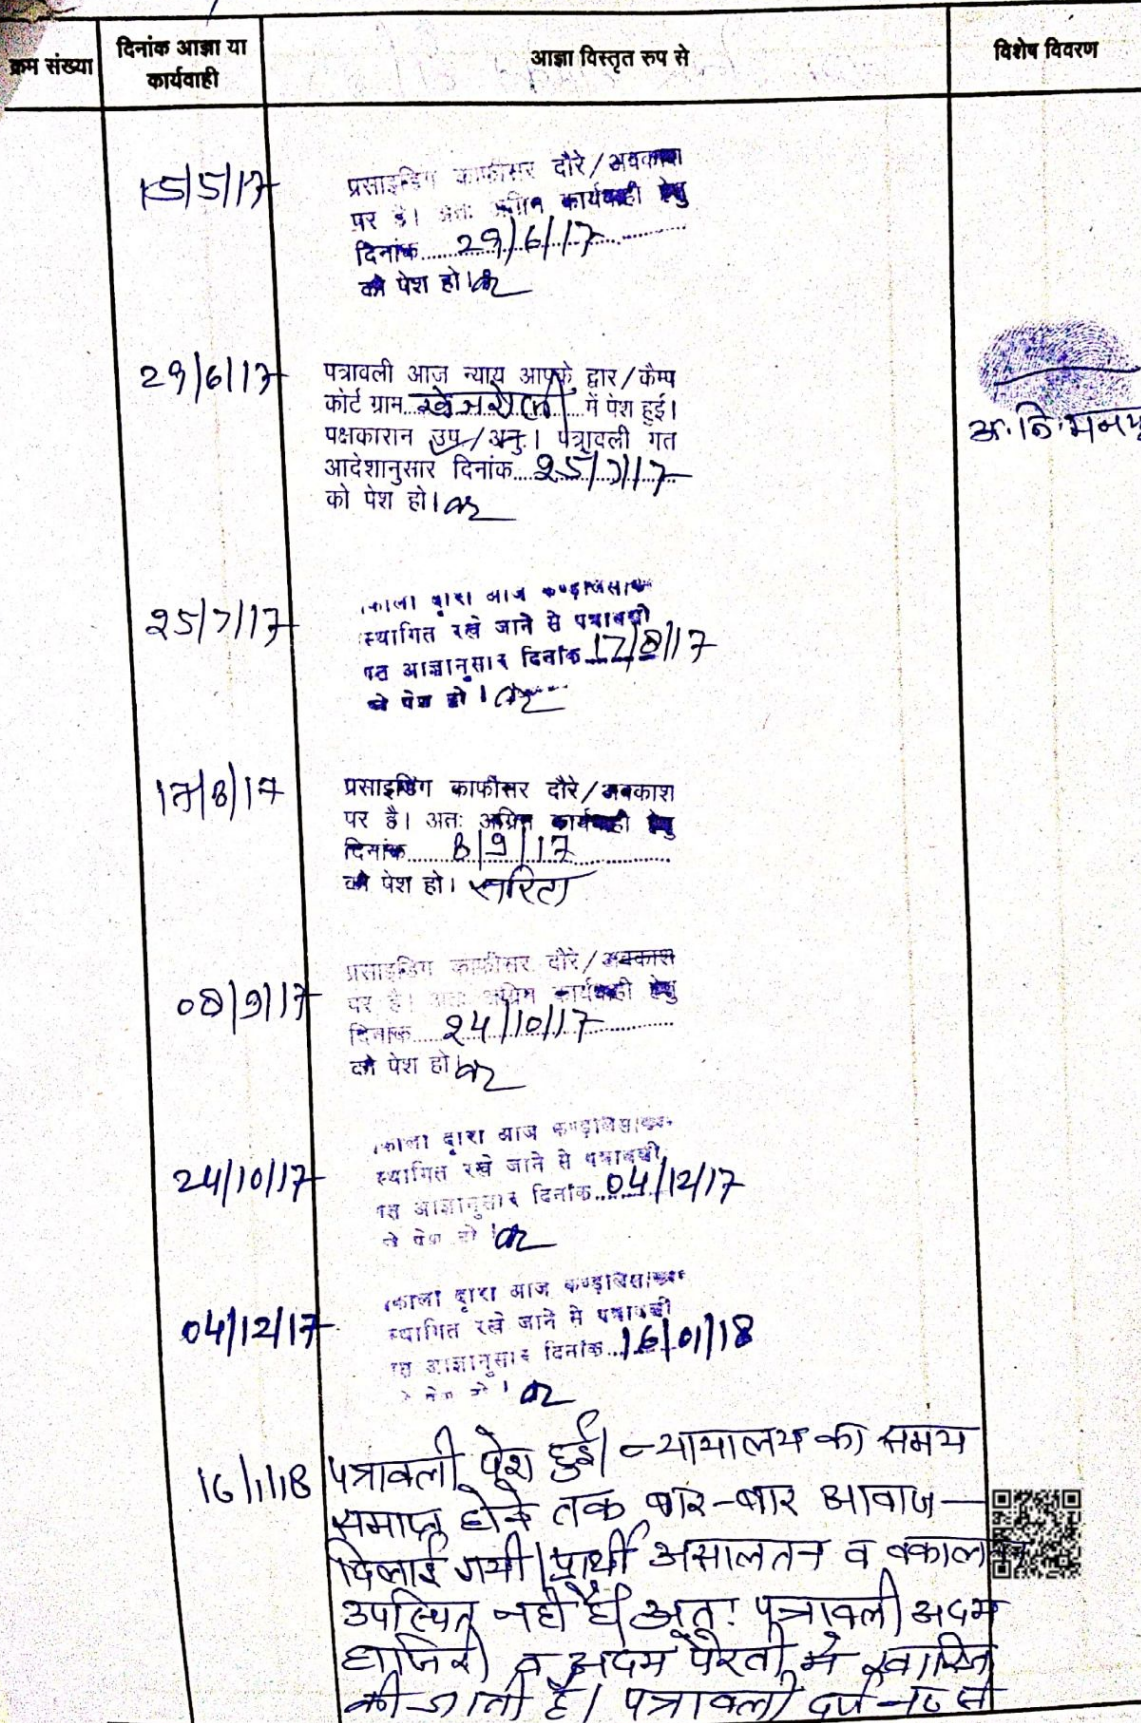 क्रम संख्या
दिनांक आज्ञा या
कार्यवाही
आज्ञा विस्तृत रुप से
विशेष विवरण
15/5/17
प्रसाइन्डिग काफीसर दौरे/अवकाश
पर है। अतः अग्रिम कार्यवाही हेतु
दिनांक......29/6/17..............
को पेश हो।
29/6/17
पत्रावली आज न्याय आपके द्वार/कैम्प
कोर्ट ग्राम.................में पेश हुई।
पक्षकारान उप/अनु.। पत्रावली गत
आदेशानुसार दिनांक...25/7/17
को पेश हो।
25/7/17
द्वारा आज
स्थागित रखे जाने से पत्रावली
गत आज्ञानुसार दिनांक 17/8/17
को पेश हो।
17/8/17
प्रसाइडिंग काफीसर दौरे/अवकाश
पर है। अतः अग्रिम कार्यवाही हेतु
दिनांक......8/9/17..............
को पेश हो। सरिता
08/9/17
प्रसाइडिग काफीसर दौरे/अवकाश
पर है। अतः अग्रिम कार्यवाही हेतु
दिनांक......24/10/17..............
को पेश हो
24/10/17
द्वारा आज
स्थागित रखे जाने से पत्रावली
गत आज्ञानुसार दिनांक...04/12/17
को पेश हो
04/12/17
द्वारा आज
स्थागित रखे जाने से पत्रावली
गत आज्ञानुसार दिनांक...16/01/18
को पेश हो।
16/1/18
पत्रावली पेश हुई। न्यायालय का समय
समाप्त होने तक बार-बार आवाज
दिलाई गयी। प्रार्थी असालतन व वकालतन
उपस्थित नही है। अतः पत्रावली अदम
हाजिरी व अदम पैरवी मे खारिज
की जाती है। पत्रावली दर्ज